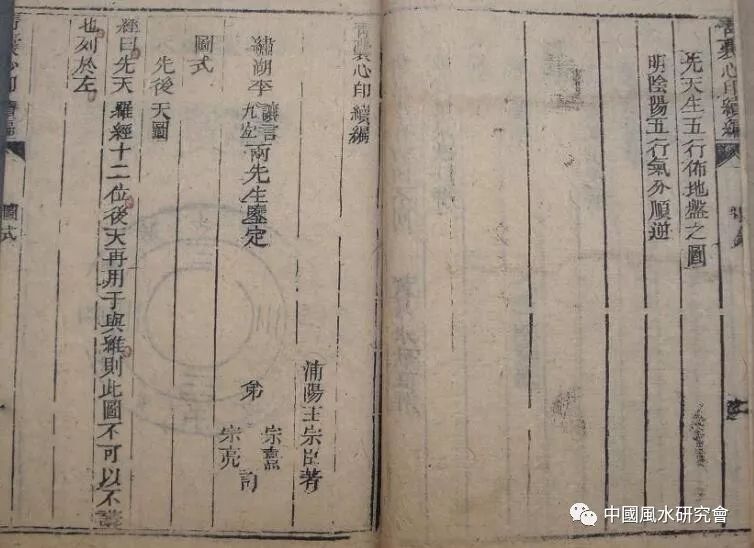 青囊心印續編
先天生五行佈地盤之圖
明陰陽五行氣分順逆
青囊心印續編
浦陽王宗臣著
弟
宗燾
宗亮
繡湖李
九
兩先生鑒定
圖式
先後天圖
經曰先天羅經十二位後天再用干與維則此圖不可以不
也列於左
圖式
中國風水研究會